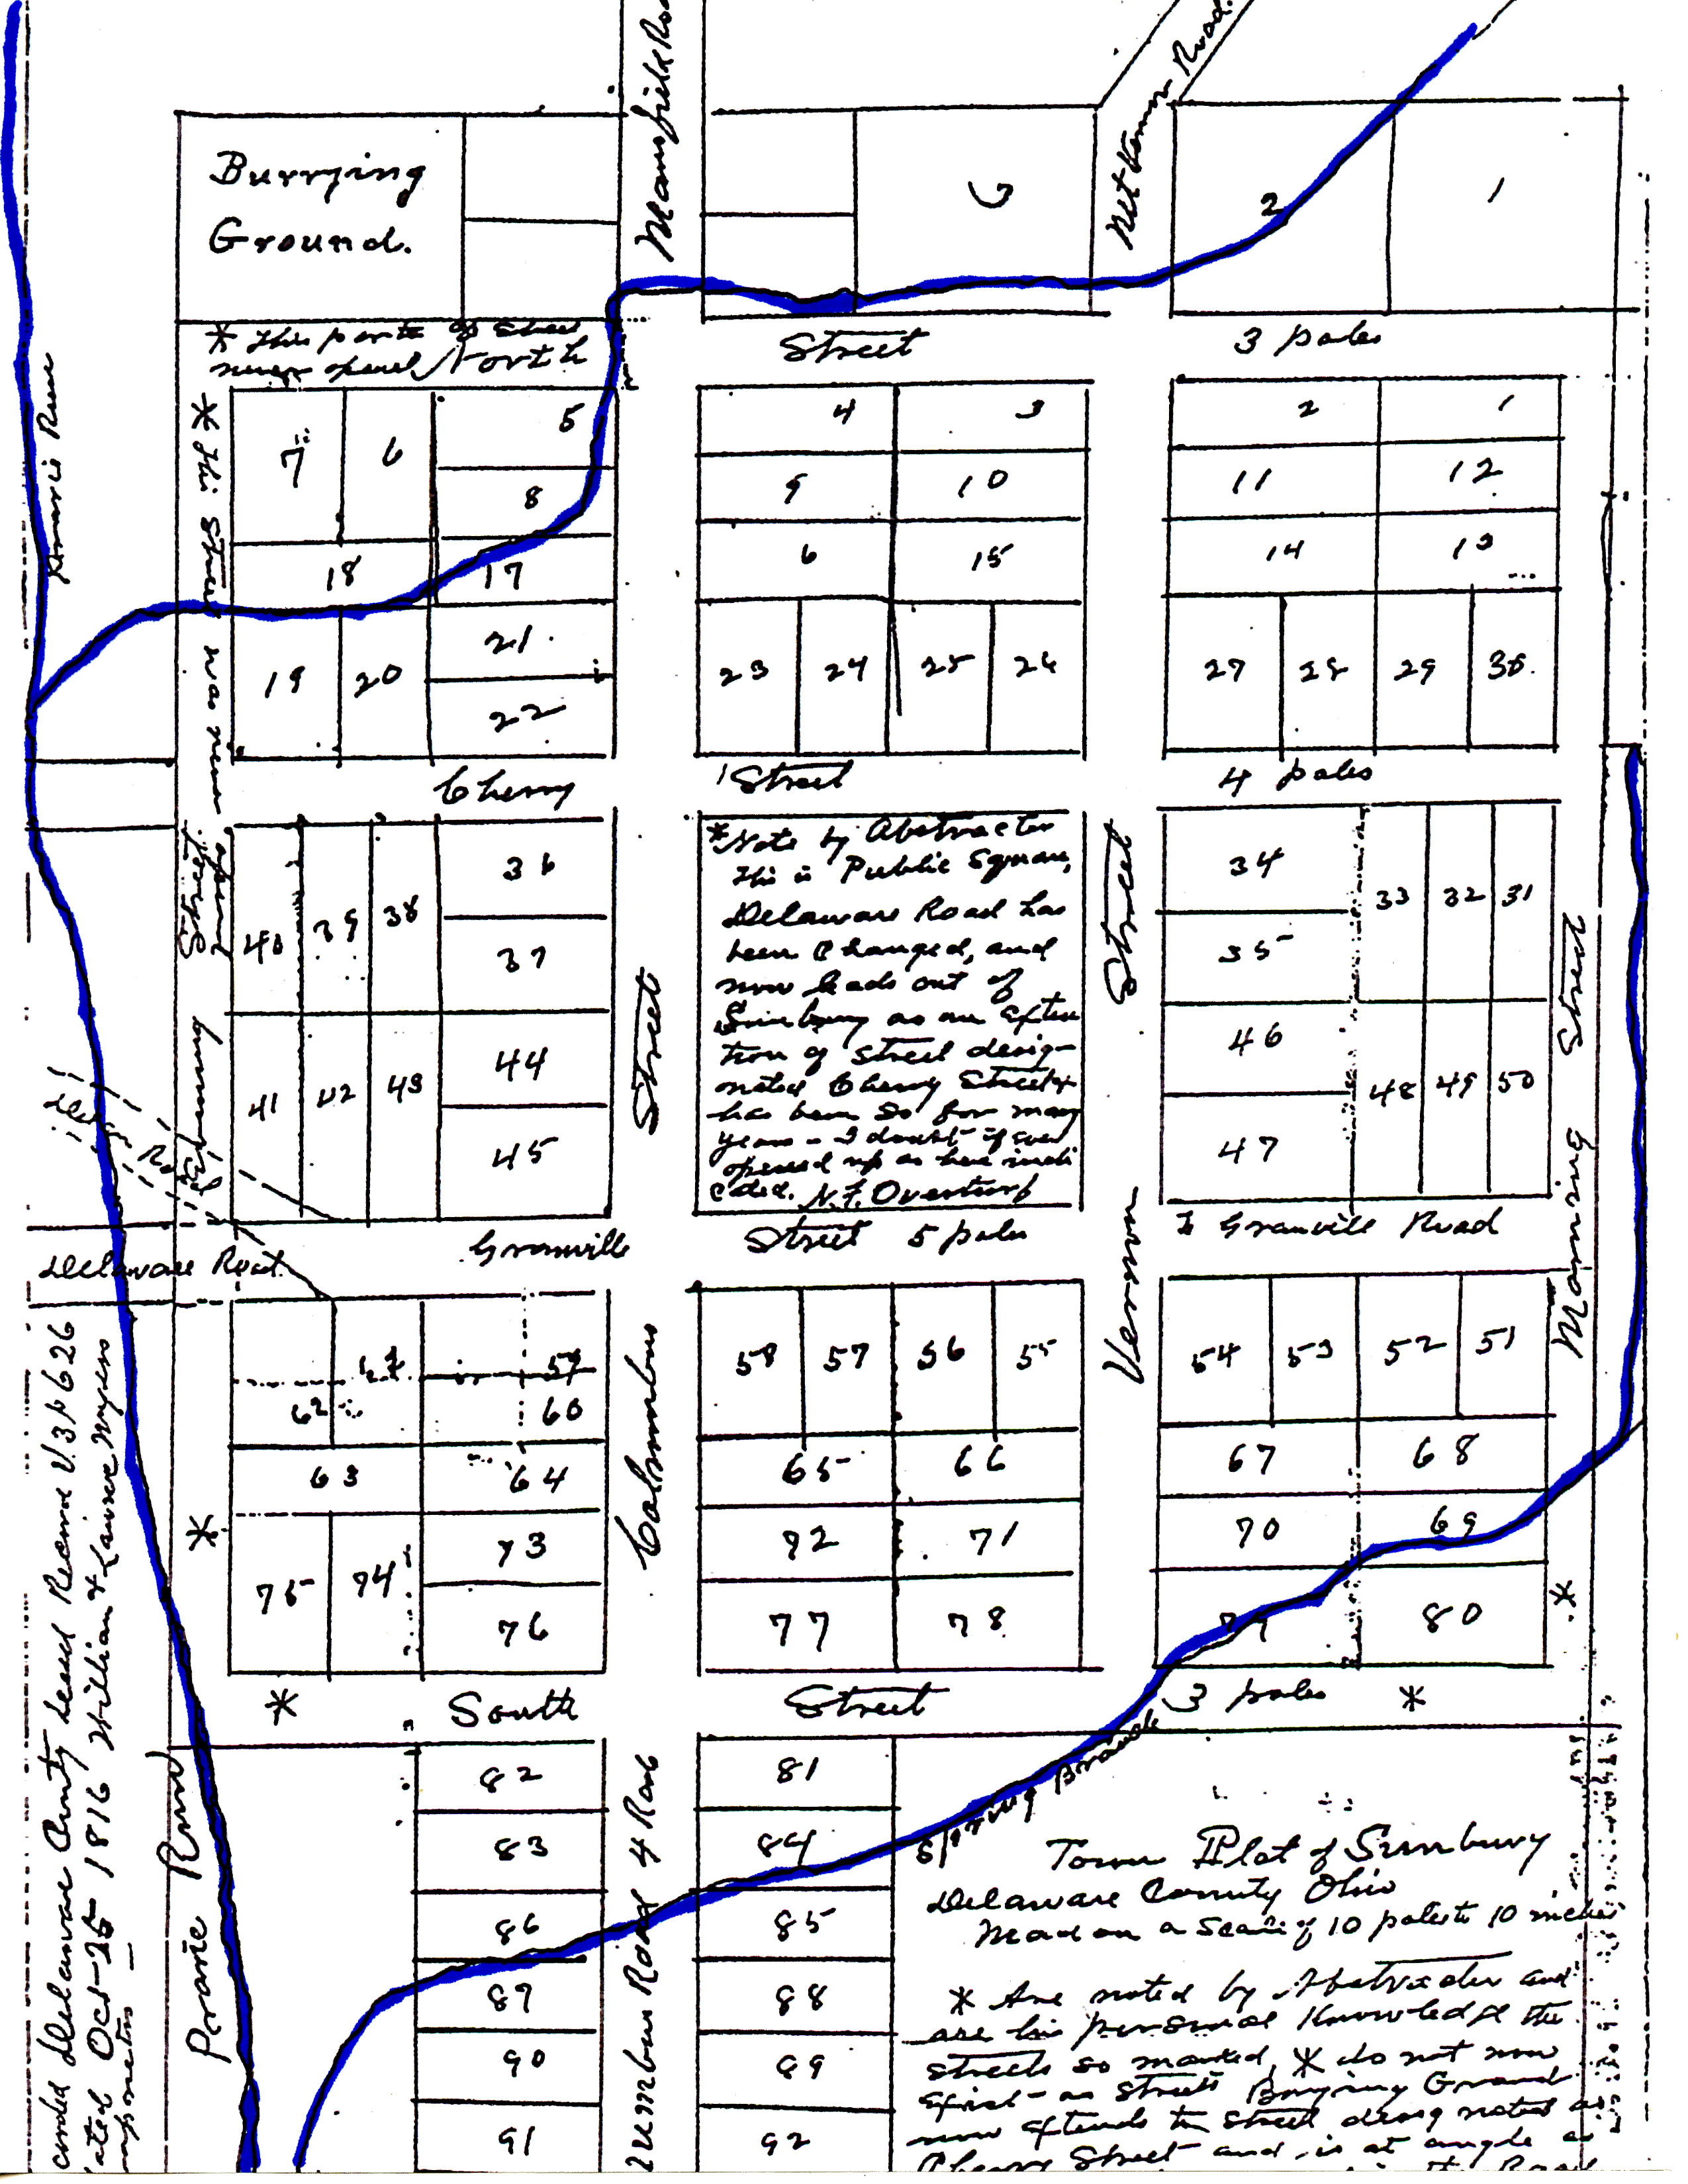 Mansfield Road
Burrying
Ground.
2
1
* This part of Street
never opened North
Street
3 poles
7
6
5
8
18
17
19
20
21
22
4
3
9
10
6
15
23
24
25
26
2
1
11
12
14
13
27
28
29
30
* This Street was never opened
Cherry
Street
4 poles
40
39
38
36
37
41
42
43
44
45
* Note by Abstracter
This is Public Square,
Delaware Road has
been Changed, and
now leads out of
Sunbury as an
tion of street desig-
nated Cherry Street &
has been so for many
years - I doubt if ever
opened up as here indi
cated. N.F. Overturf
34
35
33
32
31
46
47
48
49
50
Street
Street
Morning Street
Delaware Road
Granville
Street 5 poles
To Granville Road
62
59
60
63
64
75
74
73
76
58
57
56
55
65
66
92
71
77
78
54
53
52
51
67
68
70
69
80
Columbus
Vernon
*
*
*
South
Street
3 poles
*
82
83
86
87
90
91
81
84
85
88
89
92
Spring Branch
Prarie Run
Columbus Road 4 Rods
Delaware County Deed Record V.3 P 626
Oct 25 1816 William & Lawrence Myers
Town Plot of Sunbury
Delaware County Ohio
on a Scale of 10 poles to 10 inches
* Are noted by Abstracter and
are his personal Knowledge the
streets so marked, * do not now
exist as streets Burying Ground
now extends to street designated as
Cherry Street and is at angle